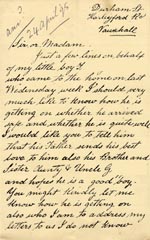 Durham St
Harleyford Rd
Vauxhall
ans?
24 April 95
Sir or Madam
Just a few lines on behalf
of my little boy
who came to the home on last
Wednesday week I should very
much like to know how he is
getting on whether he arrived
safe and whether he is quite well
I would like you to tell him
that his Father sends his best
love to him also his Brother and
Sister Aunty & Uncle G
and hopes he is a good boy
You might kindly let me
know how he is getting on
also who I am to address my
letters to us I do not know